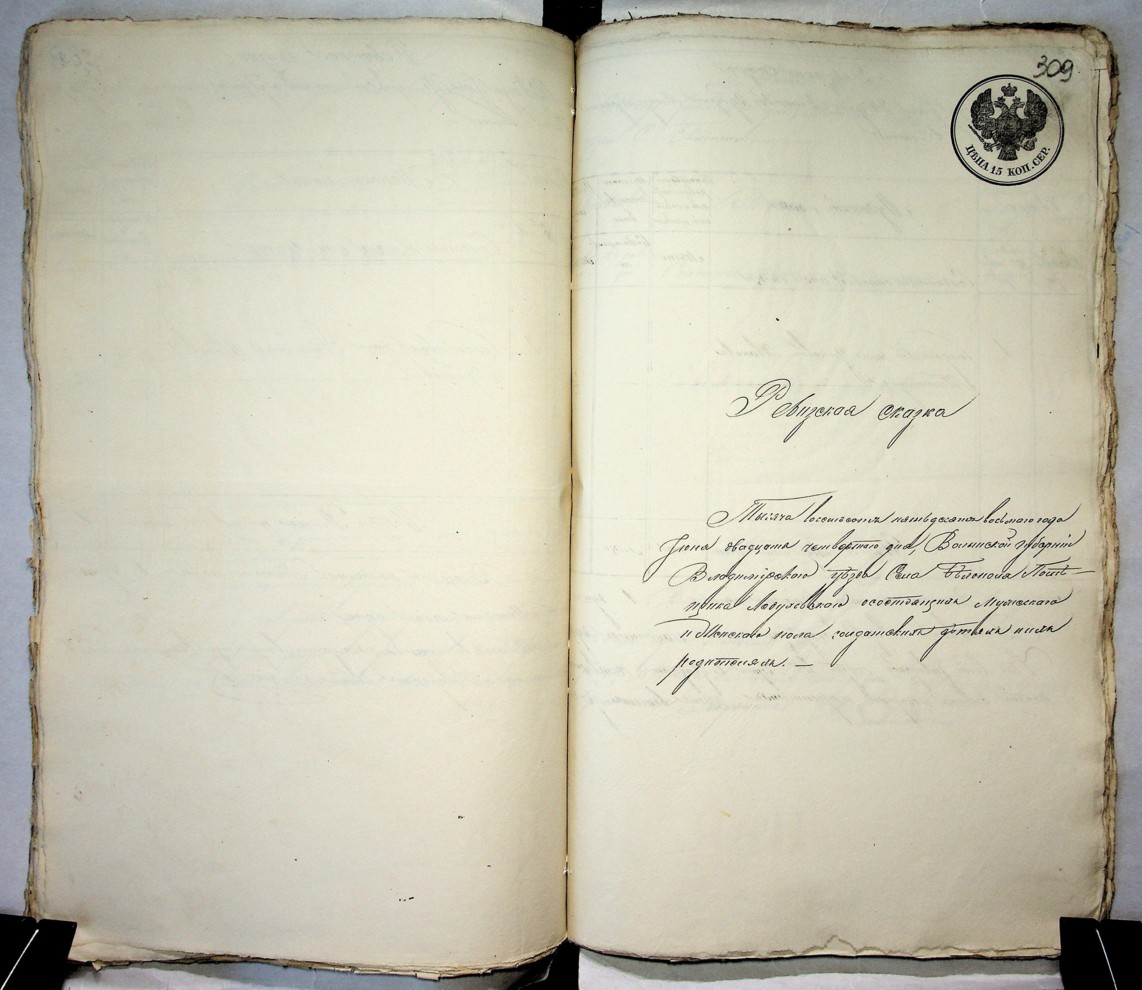 309.
ЦѢНА 15 КОП. СЕР.
Ревизская сказка
Тысяча восемсотъ пятьдесятъ восьмаго года
Іюня двадцать четвертого дня, Волынской Губерніи
Владимірскаго уѣзда Села Помѣ-
щика о состоящихъ Мужескаго
и Женскаго пола солдатскихъ дѣтяхъ ихъ
родителяхъ. —